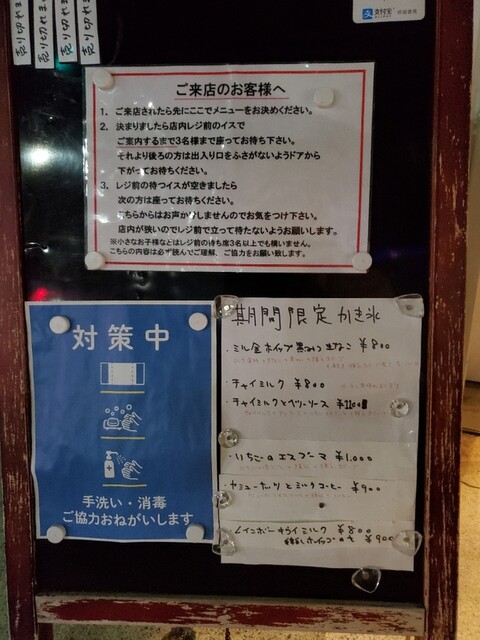 売り切れま
売り切れま
売り切れま
売り切れま
支付宝
ALIPAY
ご来店のお客様へ
1. ご来店されたら先にここでメニューをお決めください。
2. 決まりましたら店内レジ前のイスで
ご案内するまで3名様まで座ってお待ち下さい。
それより後ろの方は出入り口をふさがないようドアから
下がってお待ちください。
3. レジ前の待つイスが空きましたら
次の方は座ってお待ちください。
こちらからはお声かけしませんのでお気をつけ下さい。
店内が狭いのでレジ前で立って待たないようお願いします。
※小さなお子様などはレジ前の待ち席3名以上でも構いません。
こちらの内容は必ず読んでご理解、ご協力をお願い致します。
対策中
手洗い・消毒
ご協力おねがいします
期間限定かき氷
・ミルク金ホイップ黒みつきなこ ¥800
・チャイミルク ¥800
・チャイミルクとベリーソース ¥1100
・いちごのエスプーマ ¥1,000
ミルクコーヒー ¥900
レインボーキライミルク ¥800
¥900